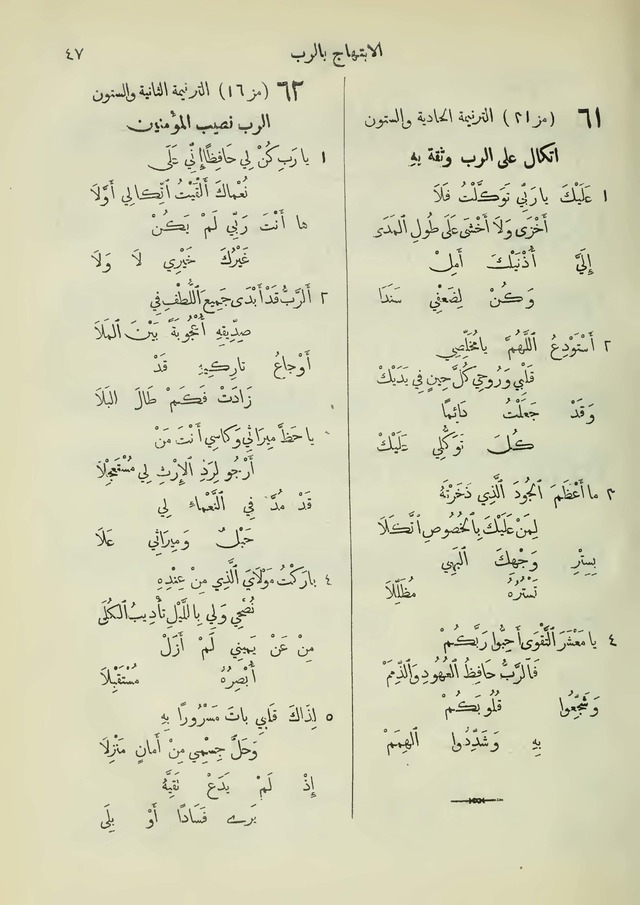 الابتهاج بالرب
٤٧
٦١ (مز ٢١) الترنيمة الحادية والستون
اتكال على الرب وثقة بهِ
١ عَلَيْكَ يا رَبِّي تَوَكَّلْتُ فَلَا
أَخْزَى وَلَا أَخْشَى عَلَى طُولِ ٱلمَدَى
إِلَيَّ أُذْنَيْكَ أَمِلْ
وَكُنْ لِضَعْفِي سَنَدَا
٢ أَسْتَوْدِعُ ٱللَّهُمَّ يا مُخَلِّصِي
قَلْبِي وَرُوحِي كُلَّ حِينٍ فِي يَدَيْكْ
وَقَدْ جَعَلْتُ دَائِمًا
كُلَّ تَوَكُّلِي عَلَيْكْ
٣ ما أَعْظَمَ ٱلجُودَ ٱلَّذِي ذَخَرْتَهُ
لِمَنْ عَلَيْكَ بِٱلخُصُوصِ ٱتَّكَلَا
بِسِتْرِ وَجْهِكَ ٱلبَهِي
تَسْتُرُهُ مُظَلِّلَا
٤ يا مَعْشَرَ ٱلتَّقْوَى أَحِبُّوا رَبَّكُمْ
فَٱلرَّبُّ حَافِظُ ٱلعُهُودِ وَٱلذِّمَمْ
وَشَجِّعُوا قُلُوبَكُمْ
بِهِ وَشَدِّدُوا ٱلهِمَمْ
٦٢ (مز ١٦) الترنيمة الثانية والستون
الرب نصيب المؤْمنين
١ يا رَبِّ كُنْ لِي حَافِظًا إِنِّي عَلَى
نُعْمَاكَ أَلْقَيْتُ ٱتِّكَالِي أَوَّلَا
ها أَنْتَ رَبِّي لَمْ يَكُنْ
غَيْرُكَ خَيْرِي لَا وَلَا
٢ أَلرَّبُّ قَدْ أَبْدَى جَمِيعَ ٱللُّطْفِ فِي
صِدِّيقِهِ أُعْجُوبَةً بَيْنَ ٱلمَلَا
أَوْجَاعُ تَارِكِيهِ قَدْ
زَادَتْ فَكَمْ طَالَ ٱلبَلَا
يا حَظَّ مِيرَاثِي وَكَاسِي أَنْتَ مَنْ
أَرْجُو لِرَدِّ ٱلإِرْثِ لِي مُسْتَعْجِلَا
قَدْ مُدَّ فِي ٱلنَّعْمَاءِ لِي
حَبْلٌ وَمِيرَاثِي عَلَا
٤ بارَكْتُ مَوْلَايَ ٱلَّذِي مِنْ عِنْدِهِ
نُصْحِي وَلِي بِاللَّيْلِ تَأْدِيبُ ٱلكُلَى
مِنْ عَنْ يَمِينِي لَمْ أَزَلْ
أُبْصِرُهُ مُسْتَقْبِلَا
٥ لِذَاكَ قَلْبِي باتَ مَسْرُورًا بِهِ
وَحَلَّ جِسْمِي مِنْ أَمَانٍ مَنْزِلَا
إِذْ لَمْ يَدَعْ تَقِيَّهُ
يَرَى فَسَادًا أَوْ بِلَى